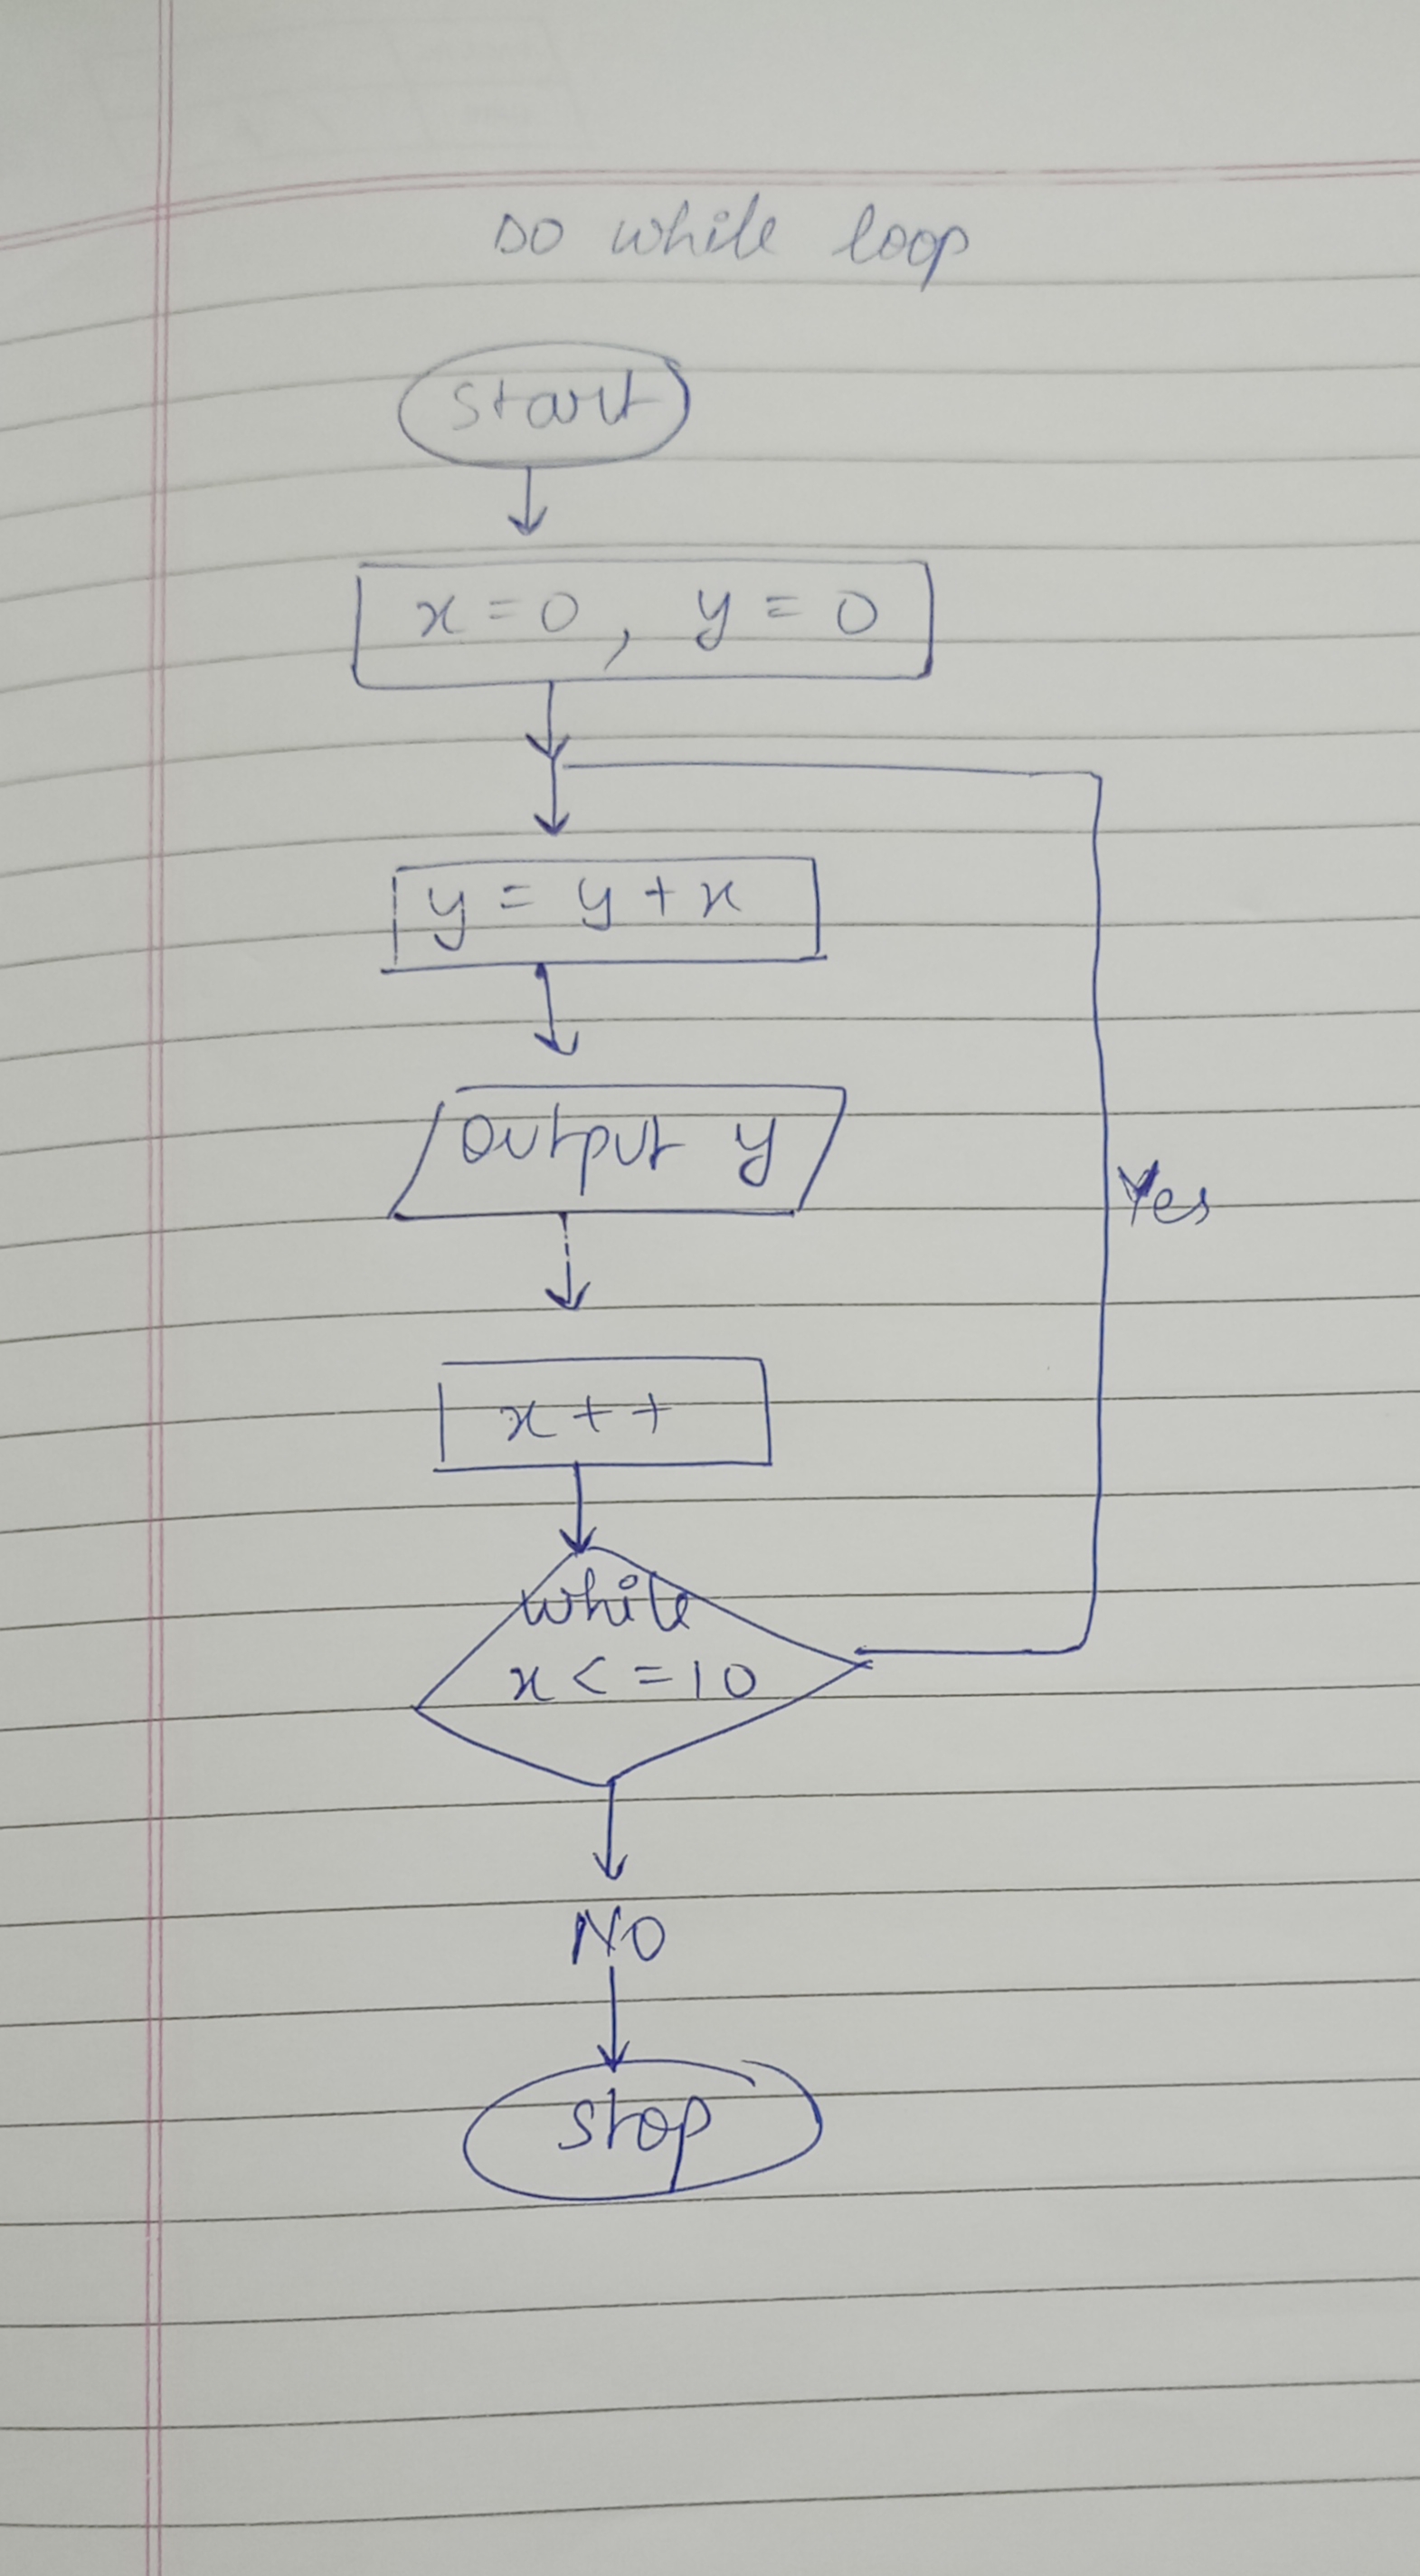 DO while loop
Start
x = 0 , y = 0
y = y + x
output y
Yes
x + +
while
x < = 10
NO
stop